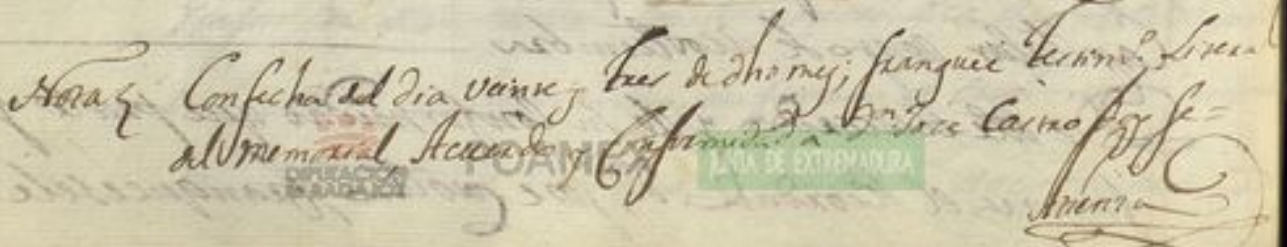 Nota Con fecha del dia veinte y tres de dho mes, franquee testimº Litera
al memorial, Acuerdo y Conformidad a Dn Jose Casino doy fe=
DIPUTACIÓN
DE BADAJOZ
JUNTA DE EXTREMADURA